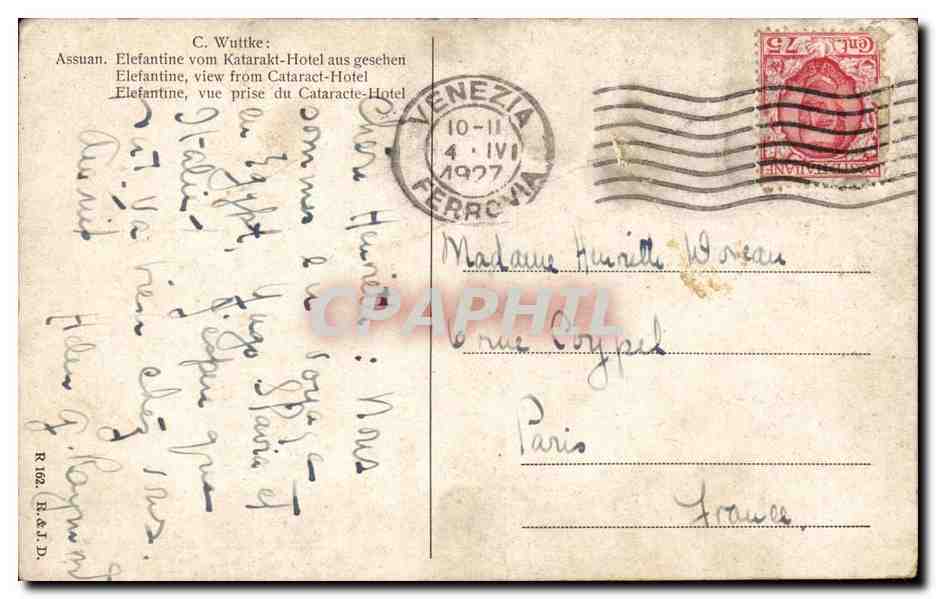 C. Wuttke:
Assuan. Elefantine vom Katarakt-Hotel aus gesehen
Elefantine, view from Cataract-Hotel
Elefantine, vue prise du Cataracte-Hotel
VENEZIA
10-11
4 · IV
1927
FERROVIA
75 Cent.
Chère Henriette: Nous
sommes en voyage
en Egypt, Yugo Slavia et
Italie. J'espère que
tout va bien chez vous.
Amitiés
Helen G. Raymond
Madame Henriette Moreau
6 rue Coypel
Paris
France.
R 162. R. & J. D.
CPAPHIL